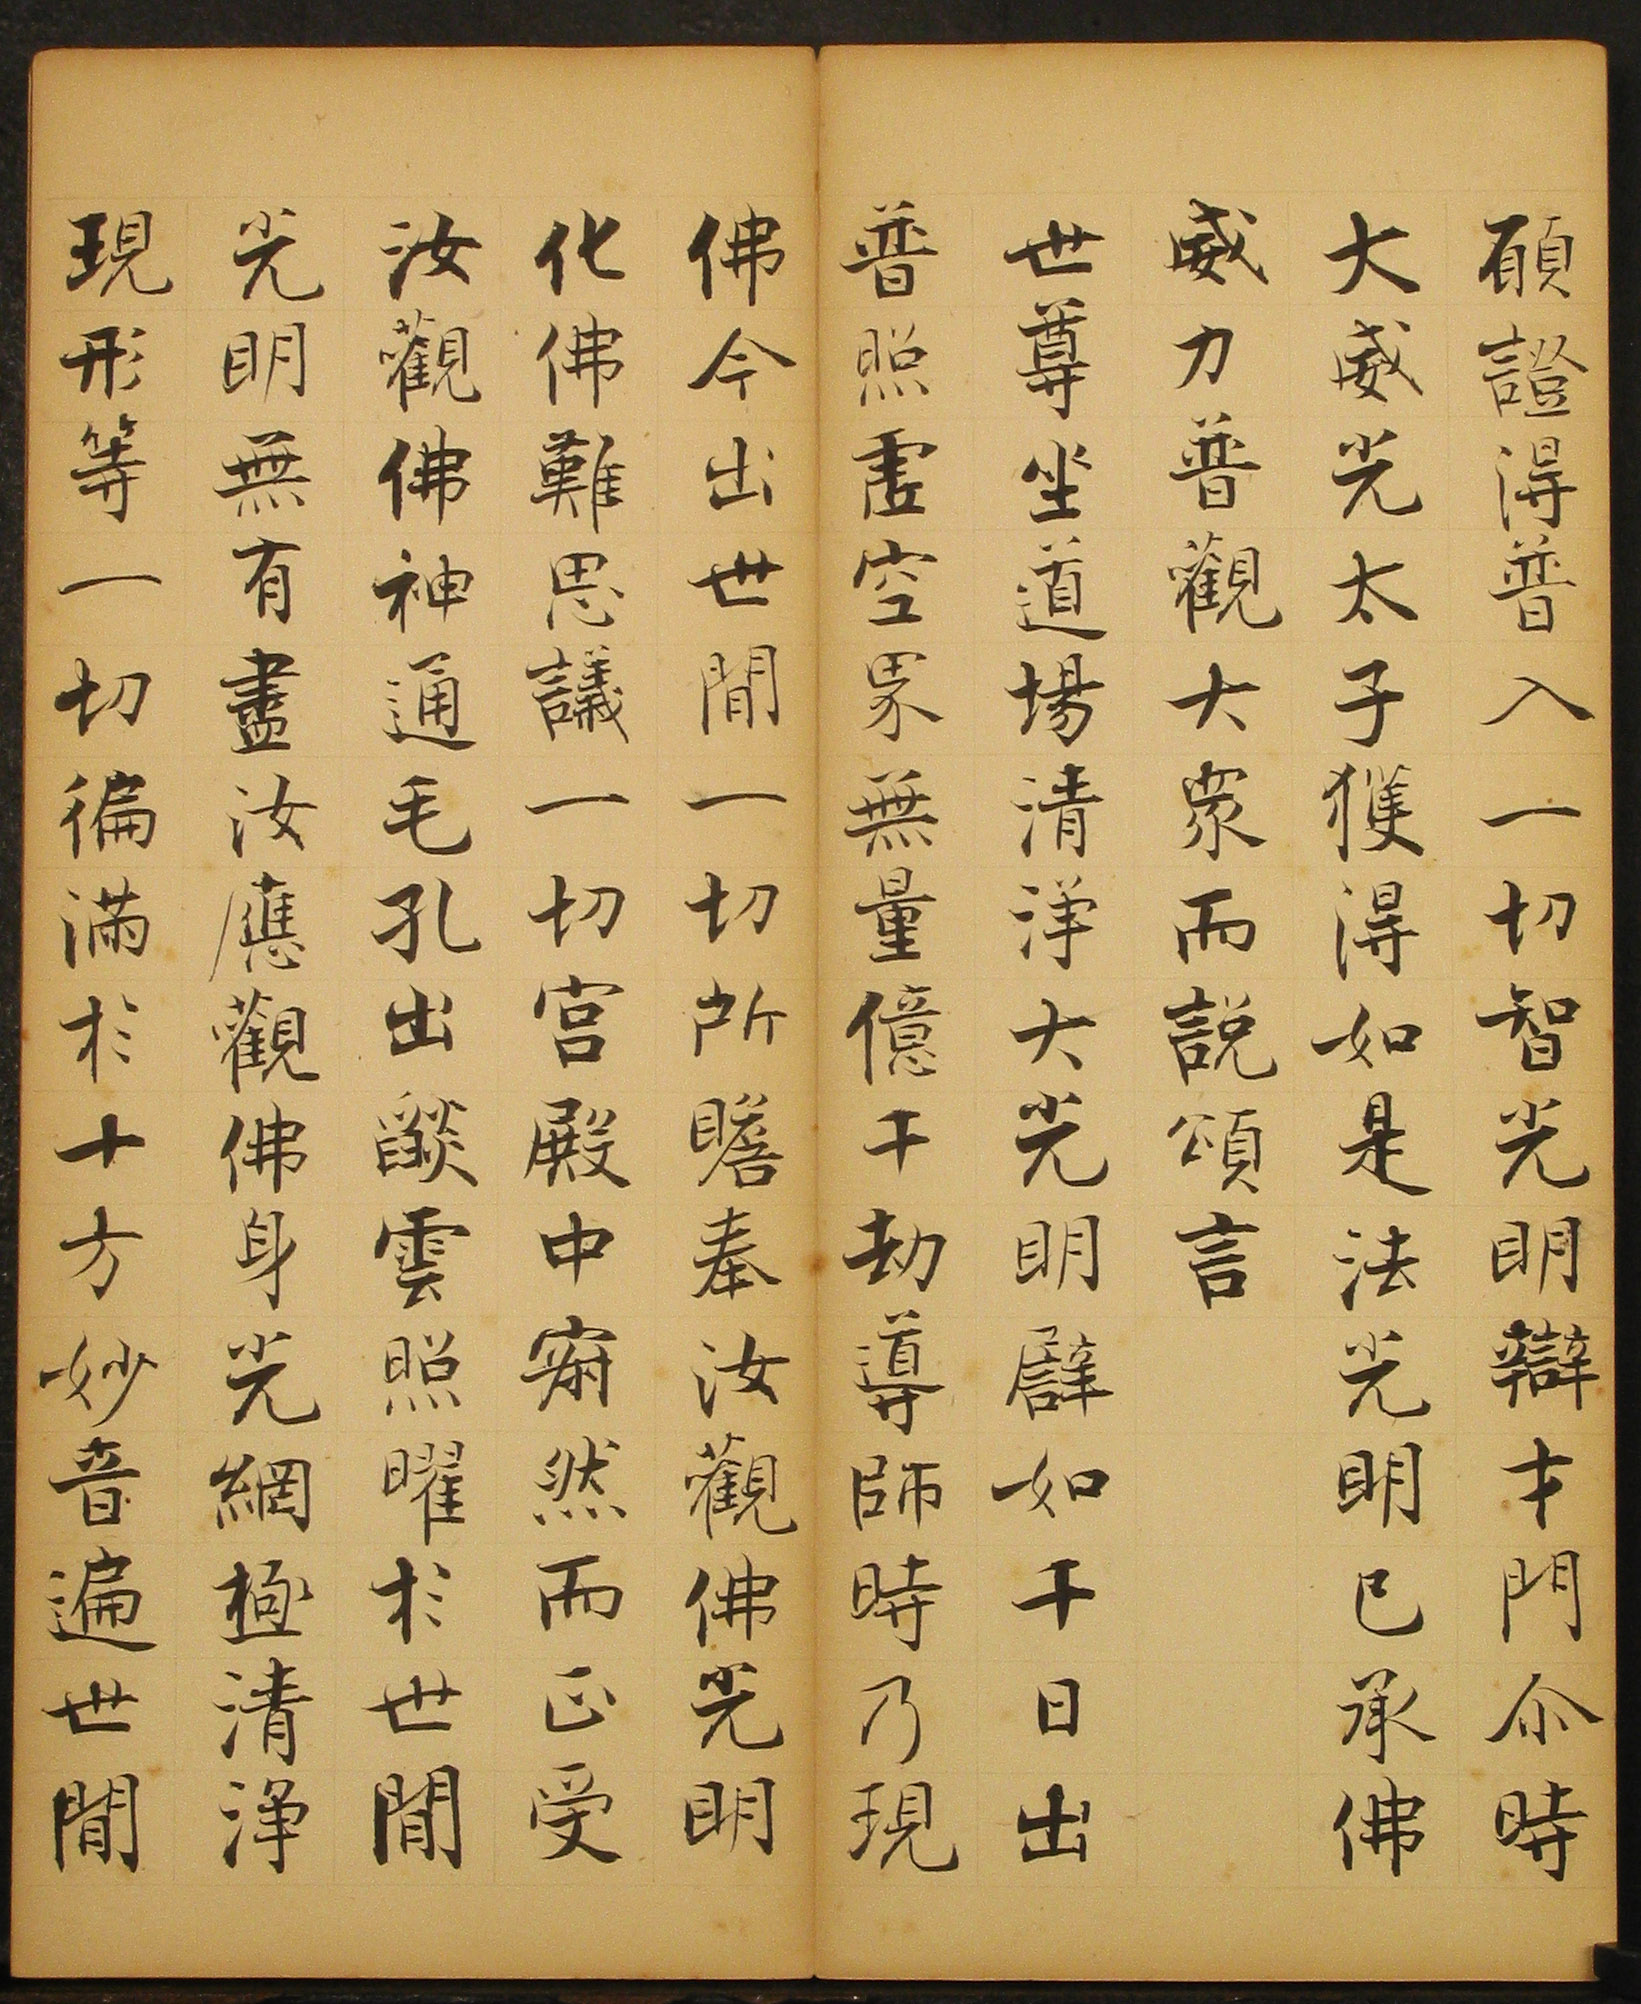 願證得普入一切智光明辯才門尒時
大威光太子獲得如是法光明已承佛
威力普觀大衆而說頌言
世尊坐道場清淨大光明譬如千日出
普照虛空界無量億千劫導師時乃現
佛今出世間一切所瞻奉汝觀佛光明
化佛難思議一切宮殿中寂然而正受
汝觀佛神通毛孔出燄雲照曜於世間
光明無有盡汝應觀佛身光網極清淨
現形等一切徧滿於十方妙音遍世間